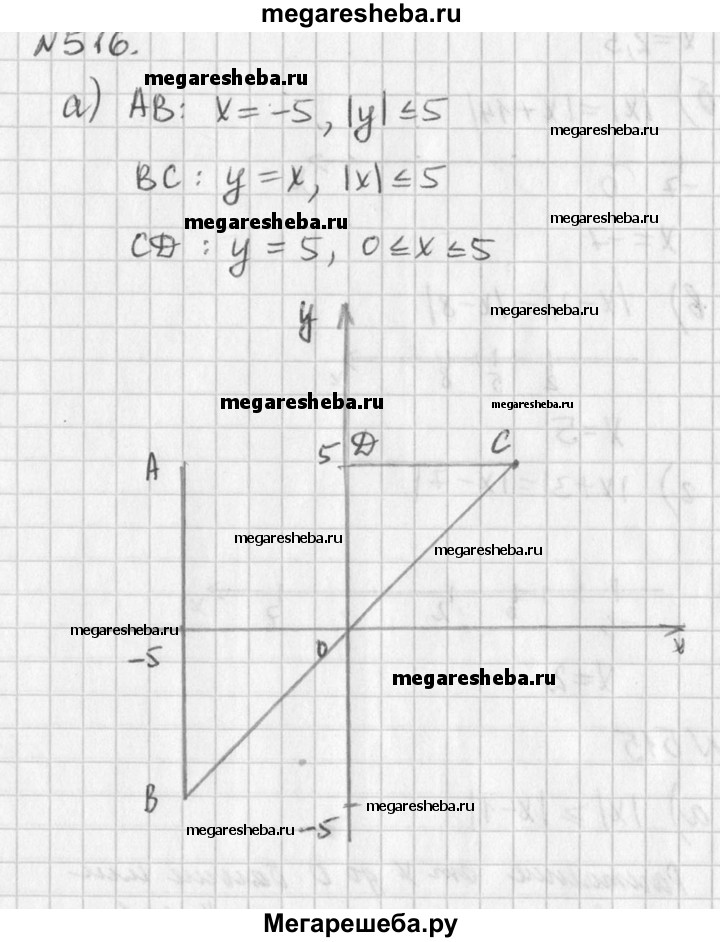 megaresheba.ru
N516.
megaresheba.ru
а) AB: x = -5, |y| ≤ 5
megaresheba.ru
BC: y = x, |x| ≤ 5
megaresheba.ru megaresheba.ru
CD: y = 5, 0 ≤ x ≤ 5
y megaresheba.ru
megaresheba.ru megaresheba.ru
A 5 D C
megaresheba.ru megaresheba.ru
megaresheba.ru
-5 0 x
megaresheba.ru
B megaresheba.ru
megaresheba.ru -5
Мегарешеба.ру